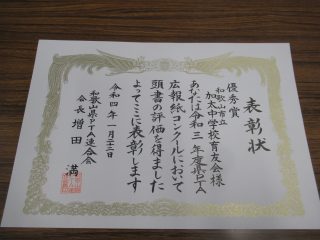 表彰状
優秀賞
和歌山市立
加太中学校育友会様
あなたは令和三年度県PTA
広報紙コンクールにおいて
頭書の評価を得ました
よってここに表彰します
令和四年一月二十二日
和歌山県PTA連合会
会長 増田 満